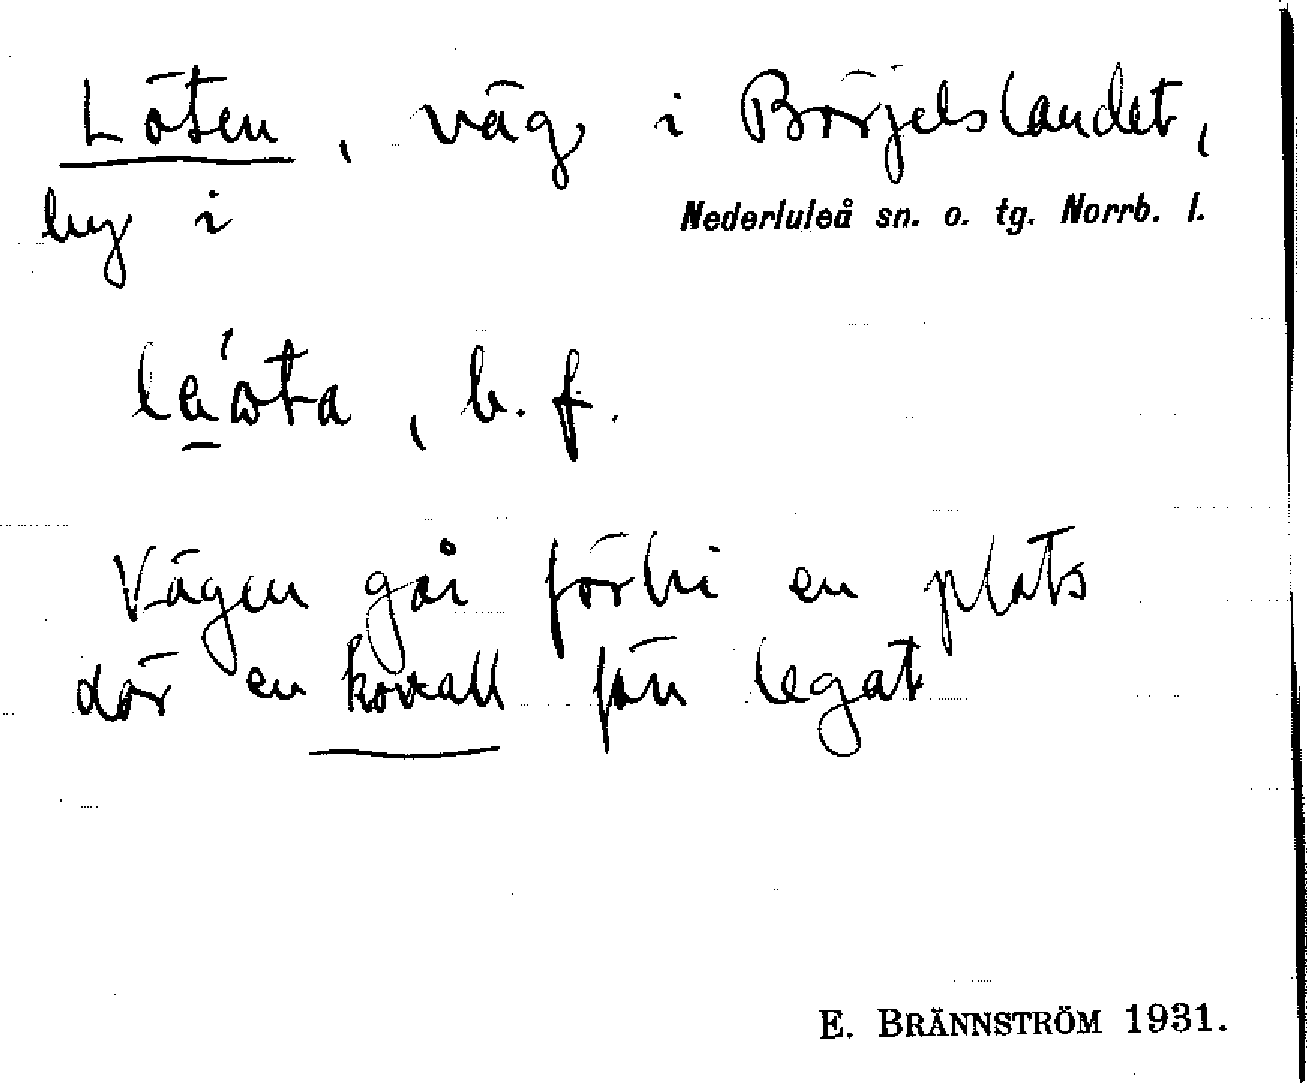 Löten, väg i Börjelslandet,
by i Nederluleå sn. o. tg. Norrb. l.
b. f.
Vägen går förbi en plats
där en kovall förr legat
E. BRÄNNSTRÖM 1931.